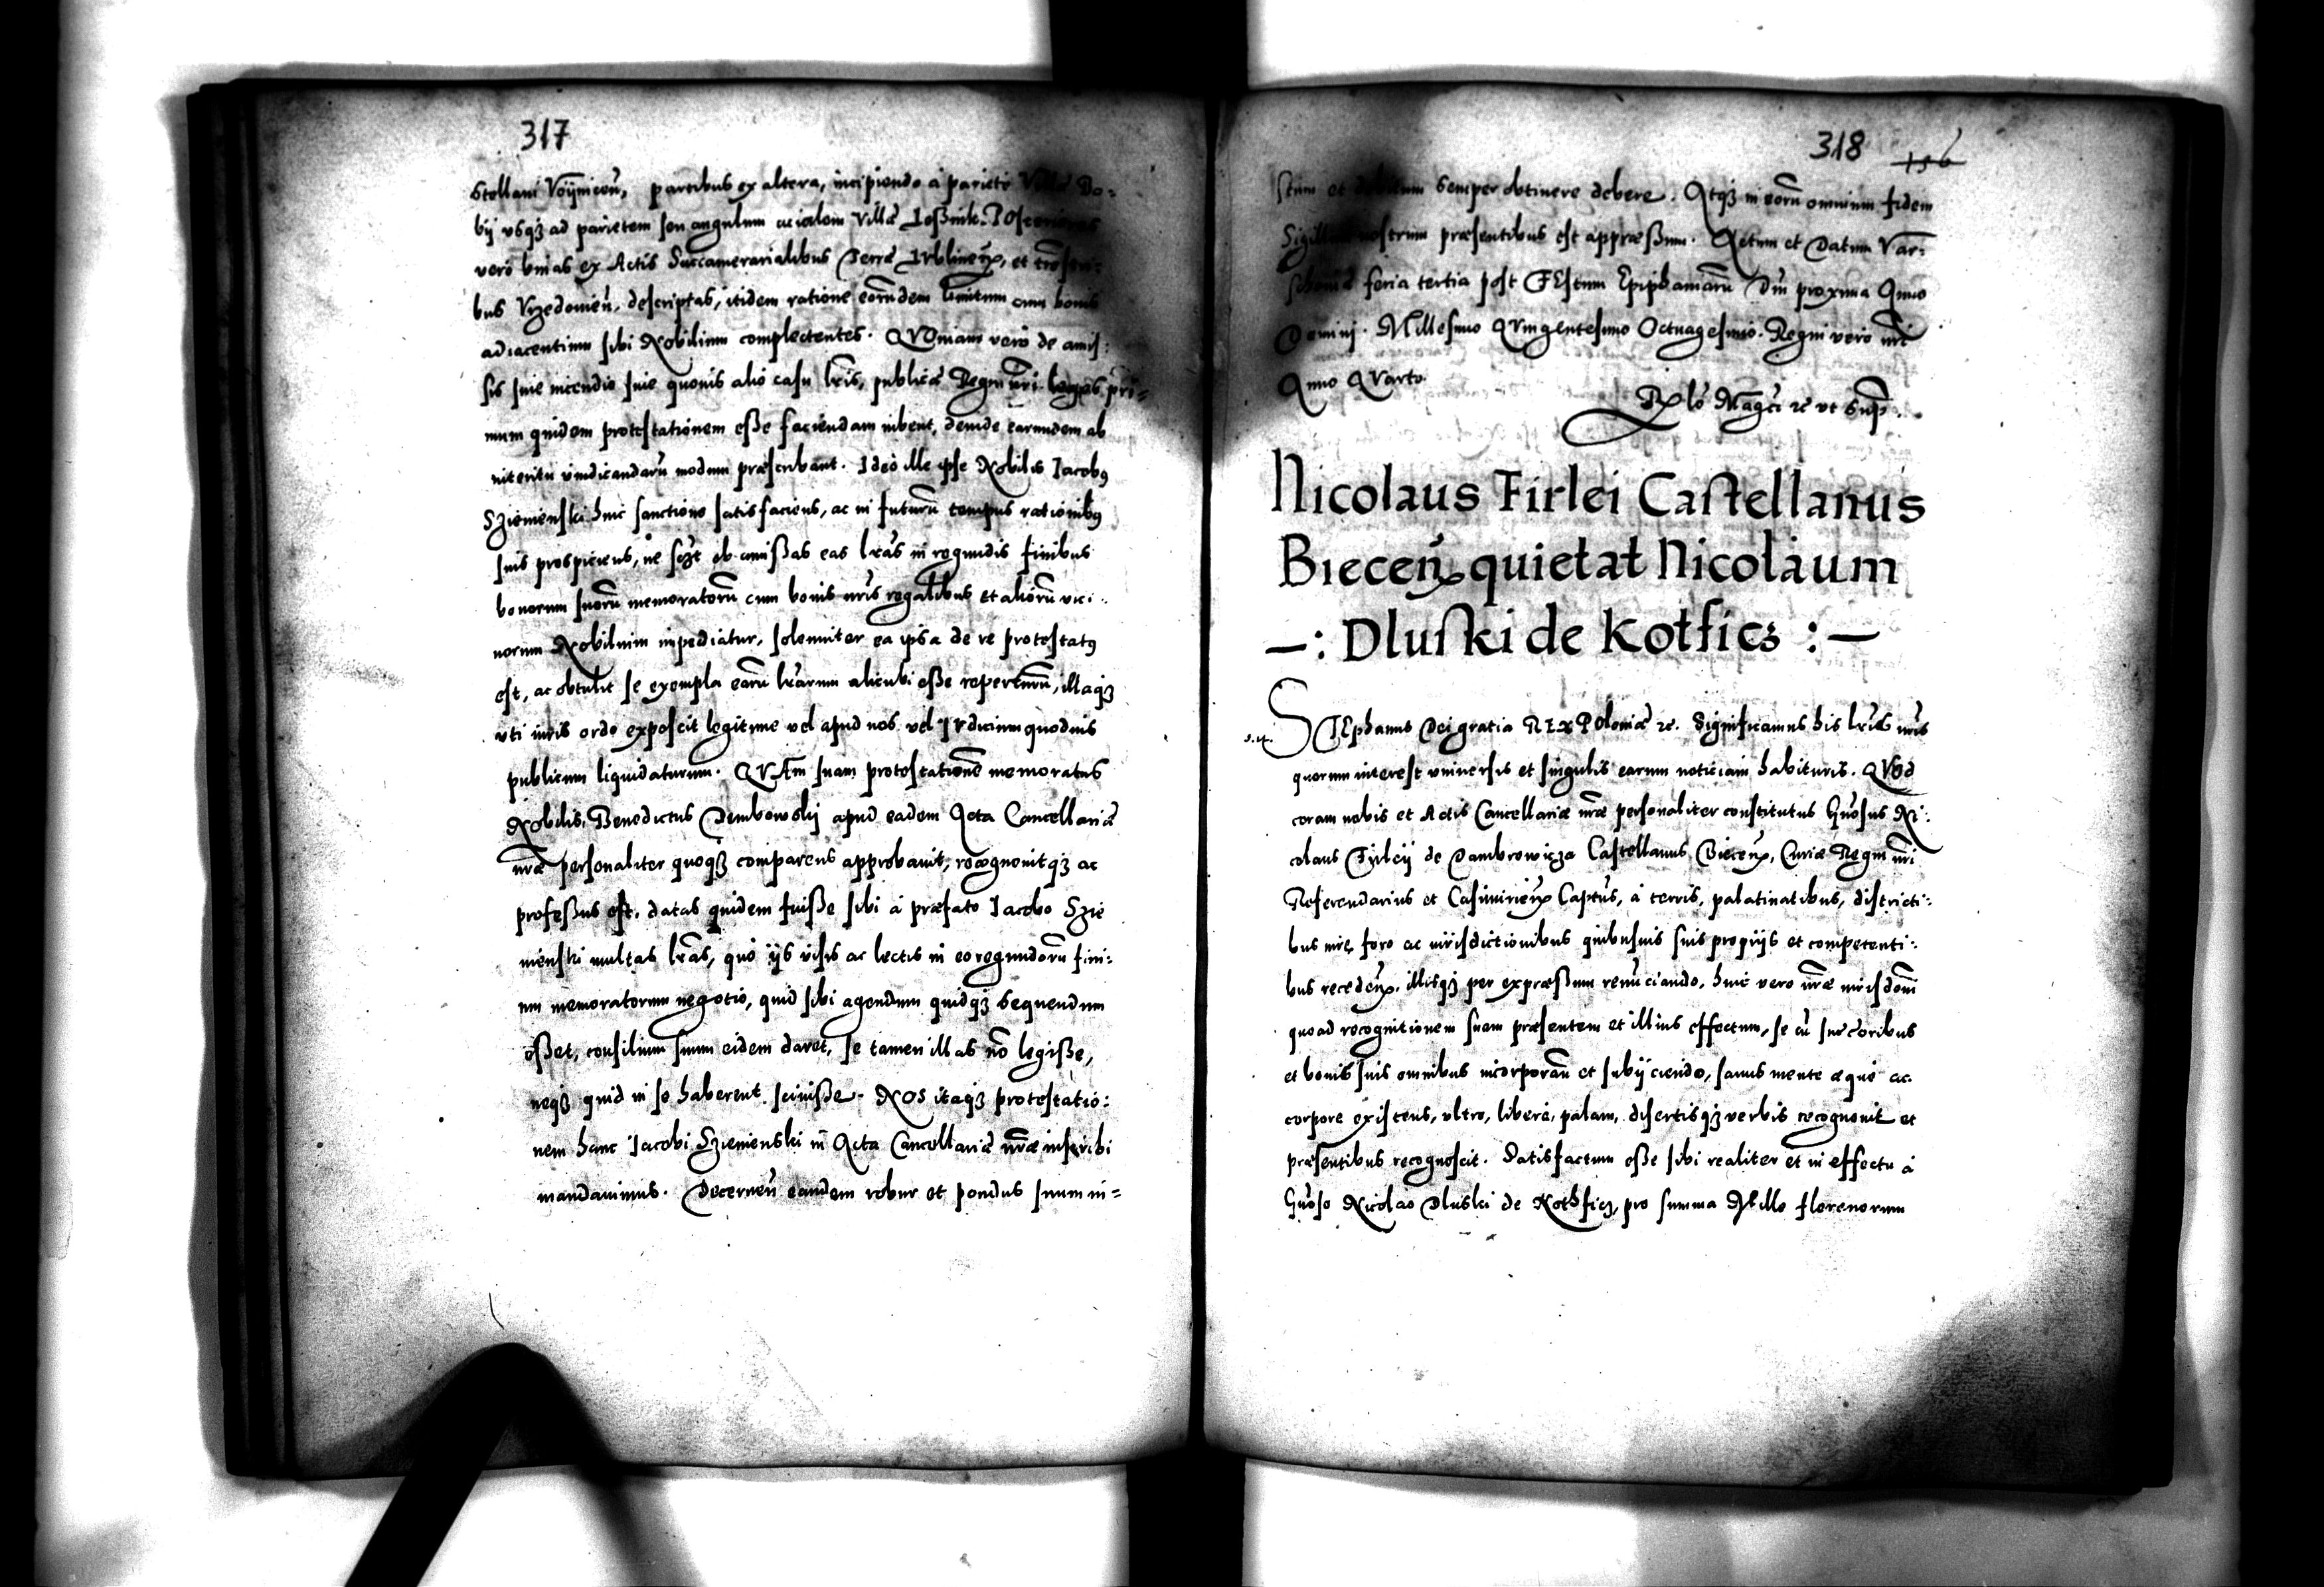 317
Stellani Voynicen̄, partibus ex altera, incipiendo à pariete Villæ Do=
bij vsqꝫ ad parietem seu angulum acialem Villæ
vero binas ex Actis Succamerarialibus Terræ Lublinen̄, et
bus Vrzedowien̄, descriptas, itidem ratione eorūdem limitum cum bonis
adiacentium sibi Nobilium complectentes. QVOniam vero de amis:
sis siue incendio siue quouis alio casu lr̄is, publicæ Regni nr̄i leges pri=
mum quidem protestationem esse faciendam iubent, deinde earundem ab
interitu vindicandarū modum præscribant. Ideo ille ipse Nobilis Iacobꝰ
Sziemienski huic sanctioni satisfaciens, ac in futurū tempus rationibꝰ
suis prospiciens, ne ob amissas eas lr̄as in regundis finibus
bonorum suorū memoratorū cum bonis nr̄is regalibus et aliorū vici:
norum Nobilium impediatur, solenniter ea ipsa de re protestatꝰ
est, ac obtulit se exempla earū lr̄arum alicubi esse reperturū, illaqꝫ
vti iuris ordo exposcit legitime vel apud nos vel IVdicium quoduis
publicum liquidaturum. QVAm suam protestationē memoratus
Nobilis, Benedictus Dembowskij apud eadem Acta Cancellariæ
nr̄æ personaliter quoqꝫ comparens approbauit, recognouitqꝫ ac
professus est, datas quidem fuisse sibi à præfato Iacobo Szie
mienski multas lr̄as, quo ijs visis ac lectis in eo regundorū fini:
um memoratorum negotio, quid sibi agendum quidqꝫ sequendum
esset, consilium suum eidem daret, se tamen illas nō legisse,
neqꝫ quid in se haberent sciuisse. NOS itaqꝫ protestatio:
nem hanc Iacobi Sziemienski in Acta Cancellariæ nr̄æ inscribi
mandauimus. Decernen̄ eandem robur et pondus suum iu=
318 156
stum et debitum semper obtinere debere. Atqꝫ in eorū omnium fidem
Sigillum nostrum præsentibus est appræssum. Actum et Datum Var:
schouiæ feria tertia post FEstum Epiphaniarū Dn̄i proxima Anno
Domini. Millesimo QVingentesimo Octuagesimo. Regni vero nr̄i
Anno QVarto.
Rlō Mag̅ci ꝛc vt sup̄.
Nicolaus Firlei Castellanus
Biecen̄ quietat Nicolaum
—: Dluski de Kotficz :—
STEphanus Dei gratia REX Poloniæ ꝛc. Significamus his lr̄is nr̄is
quorum interest vniuersis et singulis earum noticiam habituris. QVod
coram nobis et Actis Cancellariæ nr̄æ personaliter constitutus Gn̄osus Ni:
colaus Firleij de Dambrowicza Castellanus Biecen̄, Curiæ Regni nr̄i
Referendarius et Casimirien̄ Captus, à terris, palatinatibus, districti:
bus iure foro ac iurisdictionibus quibusuis suis proprijs et competenti:
bus receden̄, illisqꝫ per expræssum renunciando, huic vero nr̄æ iurisdōni
quoad recognitionem suam præsentem et illius effectum, se cū successoribus
et bonis suis omnibus incorporan̄ et subijciendo, sanus mente æque ac
corpore existens, vltro, liberè, palam, disertisqꝫ verbis recognouit et
præsentibus recognoscit. Satisfactum esse sibi realiter et in effectu à
Gn̄oso Nicolao Dluski de Kothficz, pro summa Mille florenorum